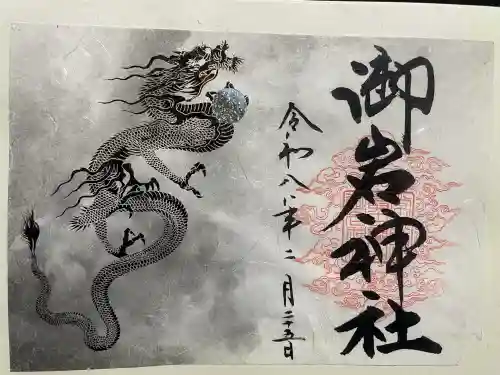 御岩神社
令和八年二月二十五日